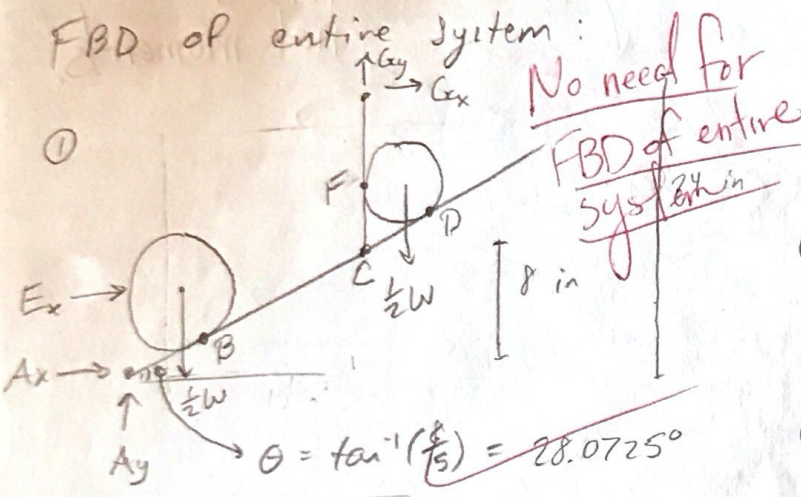 FBD of entire system :
Gy
Gx
No need for
FBD of entire
system
①
24 in
F
D
C
½W
8 in
Ex
B
Ax
½W
Ay
θ = tan⁻¹(8/15) = 28.0725°